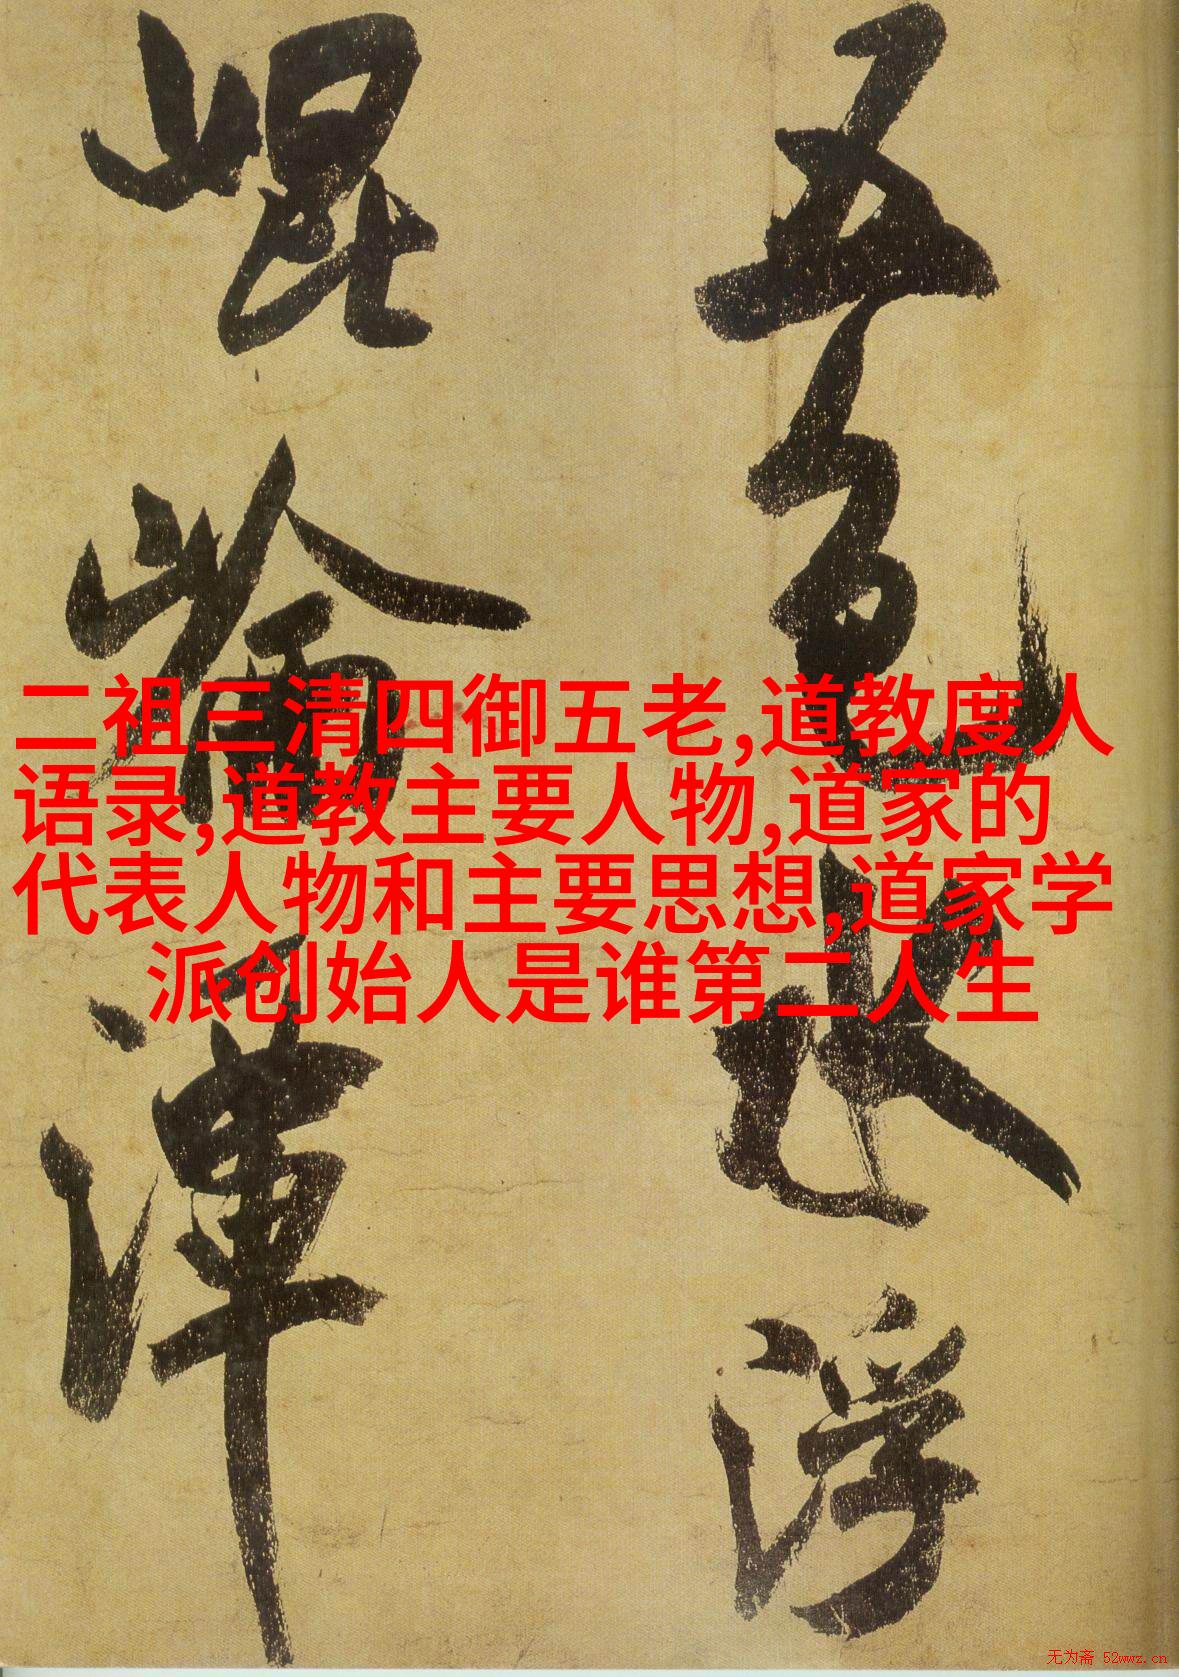 五色水浮
崐崘潭
二祖三清四御五老,道教度人
语录,道教主要人物,道家的
代表人物和主要思想,道家学
派创始人是谁第二人生
无为斋 52wwz.cn